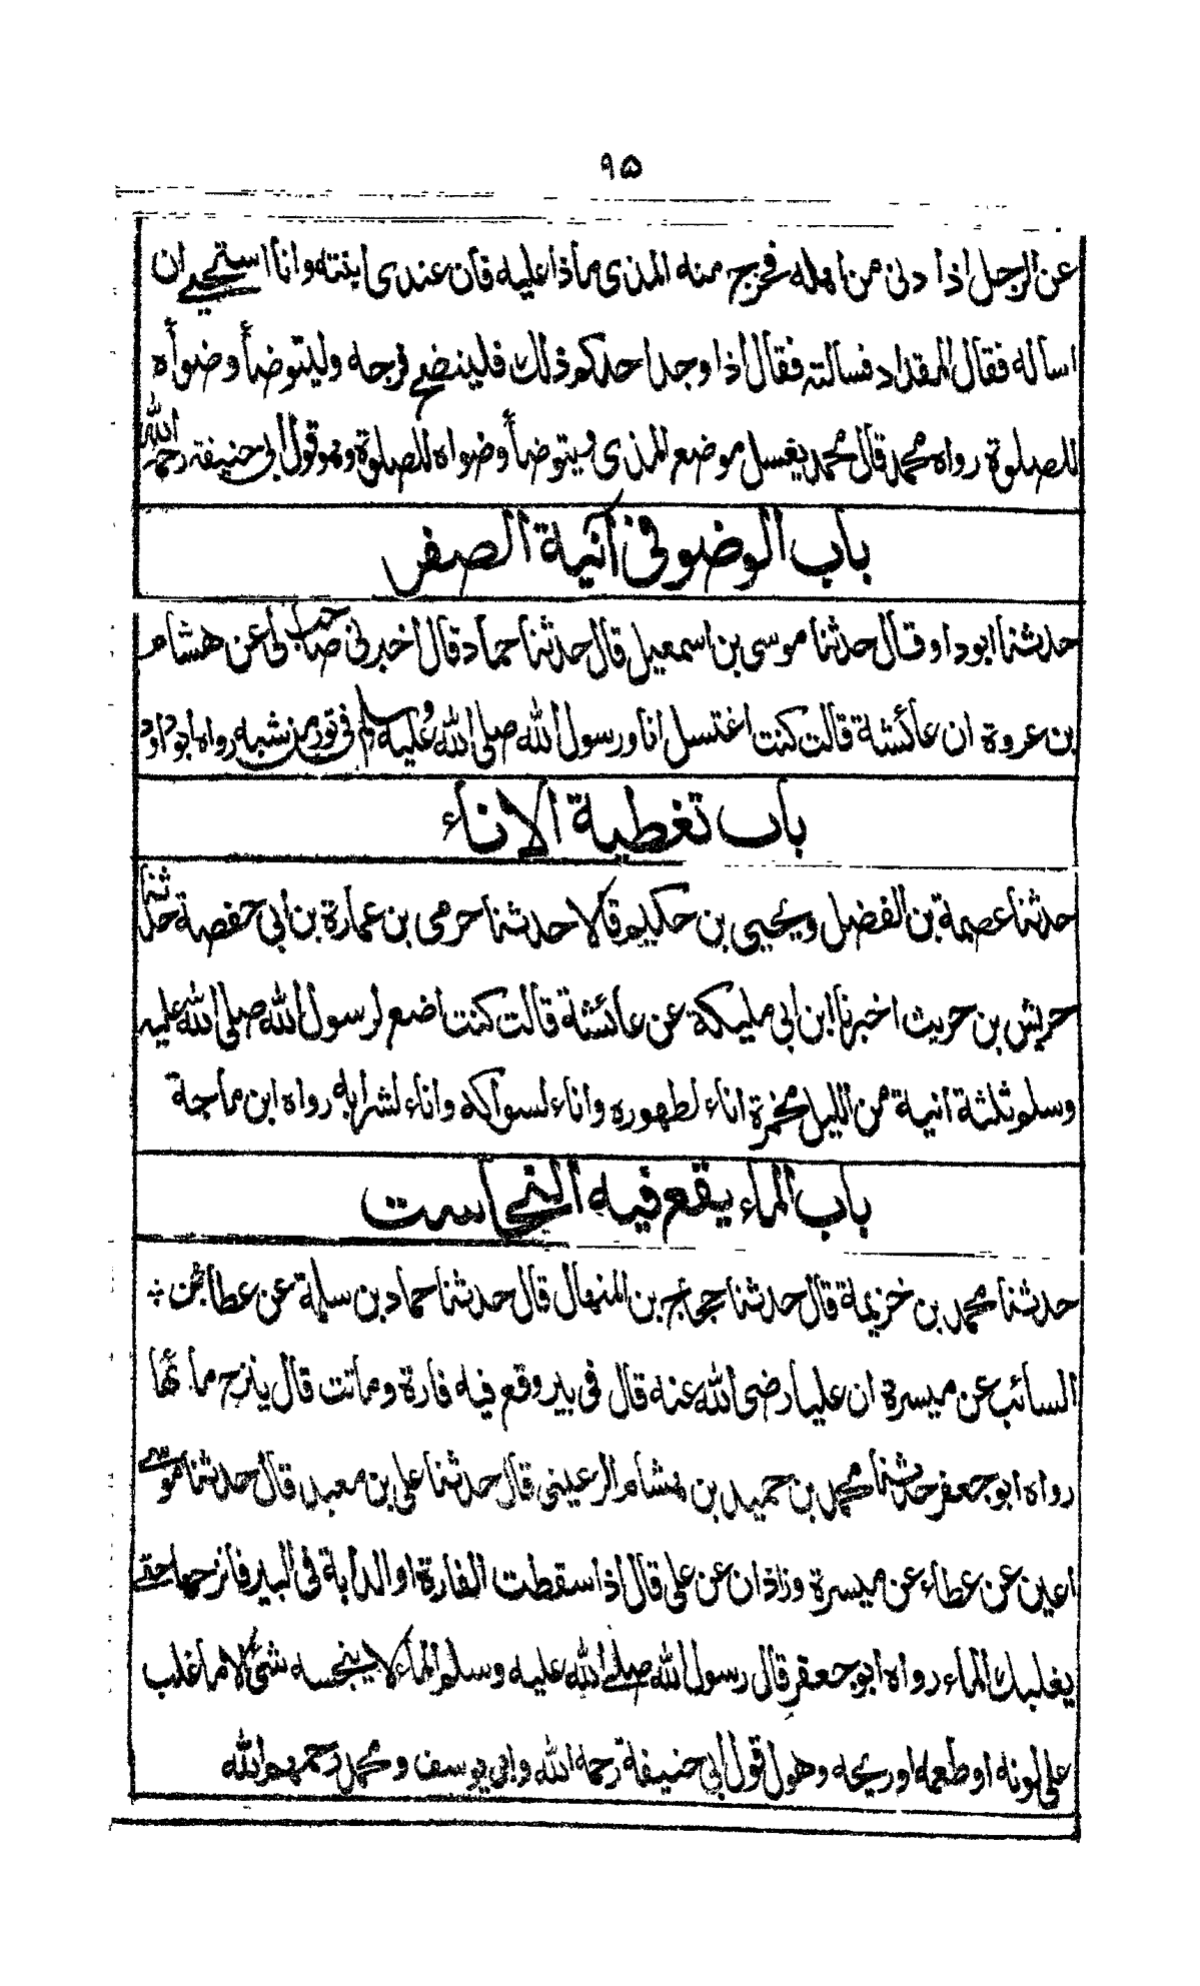 ٩٥
عن الرجل اذا دنى من اهله فخرج منه المذى ماذا عليه فان عندى ابنته وانا استحيى ان
اساله فقال المقداد فسالته فقال اذا وجد احدكم ذلك فلينضح فرجه وليتوضأ وضوأه
للصلوة رواه محمد قال محمد يغسل موضع المذى ويتوضأ وضواه للصلوة وهو قول ابى حنيفة رحمه الله
باب الوضو فى آنية الصفر
حدثنا ابوداو قال حدثنا موسى بن اسمعيل قال حدثنا حماد قال اخبرنى صاحب لى عن هشام
بن عروة ان عائشة قالت كنت اغتسل انا ورسول الله صلى الله عليه وسلم فى تور من شبه رواه ابوداود
باب تغطية الاناء
حدثنا عصمة بن الفضل ويحيى بن حكيم قالا حدثنا حرمى بن عمارة بن ابى حفصة حدثنا
حريش بن حريث اخبرنا ابن ابى مليكة عن عائشة قالت كنت اضع لرسول الله صلى الله عليه
وسلم ثلثة انية من الليل مخمرة اناء لطهوره واناء لسواكه واناء لشرابه رواه ابن ماجة
باب الماء يقع فيه النجاست
حدثنا محمد بن خزيمة قال حدثنا حجاج بن المنهال قال حدثنا حماد بن سلمة عن عطا بن
السائب عن ميسرة ان عليا رضى الله عنه قال فى بير وقع فيه فارة وماتت قال ينزح مائها
رواه ابوجعفر حدثنا محمد بن حميد بن هشام الرعينى قال حدثنا على بن معبد قال حدثنا موسى
اعين عن عطاء عن ميسرة وزاذان عن على قال اذا سقطت الفارة او الدابة فى البير فانزحها حتى
يغلبك الماء رواه ابوجعفر قال رسول الله صلى الله عليه وسلم الماء لا ينجسه شئ الا ما غلب
على لونه او طعمه اوريحه وهو قول ابى حنيفة رحمه الله وابى يوسف ومحمد رحمهم الله